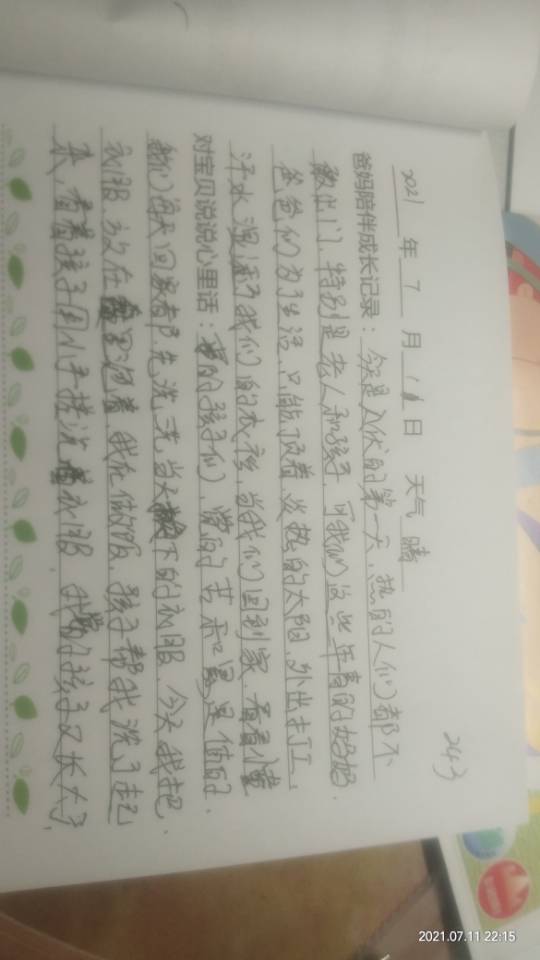 243
2021年7月11日 天气 晴
爸妈陪伴成长记录:今是入伏的第一天,热的人们都不
敢出门,特别是老人和孩子,可我们这些年青的妈妈.
爸爸们为了生活,只能顶着发热的太阳,外出打工,
汗水湿透了我们的衣衫,当我们回到家,看着
对宝贝说说心里话:的孩子们,觉的苦和累是值的.
我们每天回家都先洗洗当天下的衣服,今天我把.
衣服放在里泡着,我在做饭,孩子帮我洗了起
来,看着孩子用小手搓洗着衣服,我的孩子又长大了,
2021.07.11 22:15